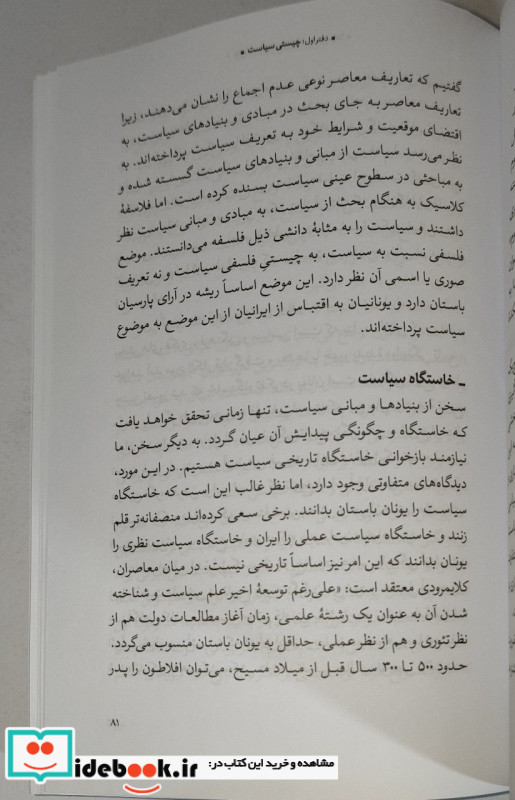 • دفتر اول: چیستی سیاست •
گفتیم که تعاریف معاصر نوعی عدم اجماع را نشان می‌دهند، زیرا
تعاریف معاصر به جای بحث در مبادی و بنیادهای سیاست، به
اقتضای موقعیت و شرایط خود به تعریف سیاست پرداخته‌اند. به
نظر می‌رسد سیاست از مبانی و بنیادهای سیاست گسسته شده و
به مباحثی در سطوح عینی سیاست بسنده کرده است. اما فلاسفهٔ
کلاسیک به هنگام بحث از سیاست، به مبادی و مبانی سیاست نظر
داشتند و سیاست را به مثابهٔ دانشی ذیل فلسفه می‌دانستند. موضع
فلسفی نسبت به سیاست، به چیستیِ فلسفی سیاست و نه تعریف
صوری یا اسمی آن نظر دارد. این موضع اساساً ریشه در آرای پارسیان
باستان دارد و یونانیان به اقتباس از ایرانیان از این موضع به موضوع
سیاست پرداخته‌اند.
ـ خاستگاه سیاست
سخن از بنیادها و مبانی سیاست، تنها زمانی تحقق خواهد یافت
که خاستگاه و چگونگی پیدایش آن عیان گردد. به دیگر سخن، ما
نیازمند بازخوانی خاستگاهِ تاریخی سیاست هستیم. در این مورد،
دیدگاه‌های متفاوتی وجود دارد، اما نظر غالب این است که خاستگاه
سیاست را یونان باستان بدانند. برخی سعی کرده‌اند منصفانه‌تر قلم
زنند و خاستگاه سیاست عملی را ایران و خاستگاه سیاست نظری را
یونان بدانند که این امر نیز اساساً تاریخی نیست. در میان معاصران،
کلایمرودی معتقد است: «علی‌رغم توسعهٔ اخیر علم سیاست و شناخته
شدن آن به عنوان یک رشتهٔ علمی، زمان آغاز مطالعات دولت هم از
نظر تئوری و هم از نظر عملی، حداقل به یونان باستان منسوب می‌گردد.
حدود ۵۰۰ تا ۳۰۰ سال قبل از میلاد مسیح، می‌توان افلاطون را پدر
۸۱
مشاهده و خرید این کتاب در:
idebook.ir